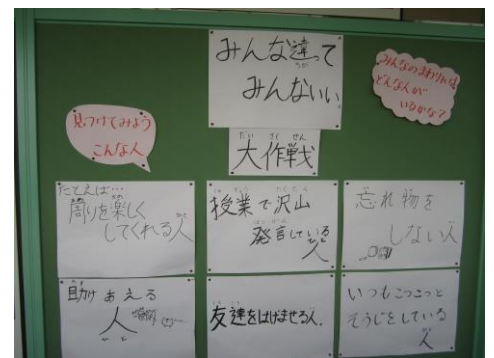 みんな違って
みんないい
大作戦
見つけてみよう
こんな人
みんなのまわりには
どんな人が
いるかな?
たとえば…
周りを楽しく
してくれる人
授業で沢山
発言している
人
忘れ物を
しない人
助けあえる
人
友達をはげませる人。
いつもこつこつと
そうじをしている
人